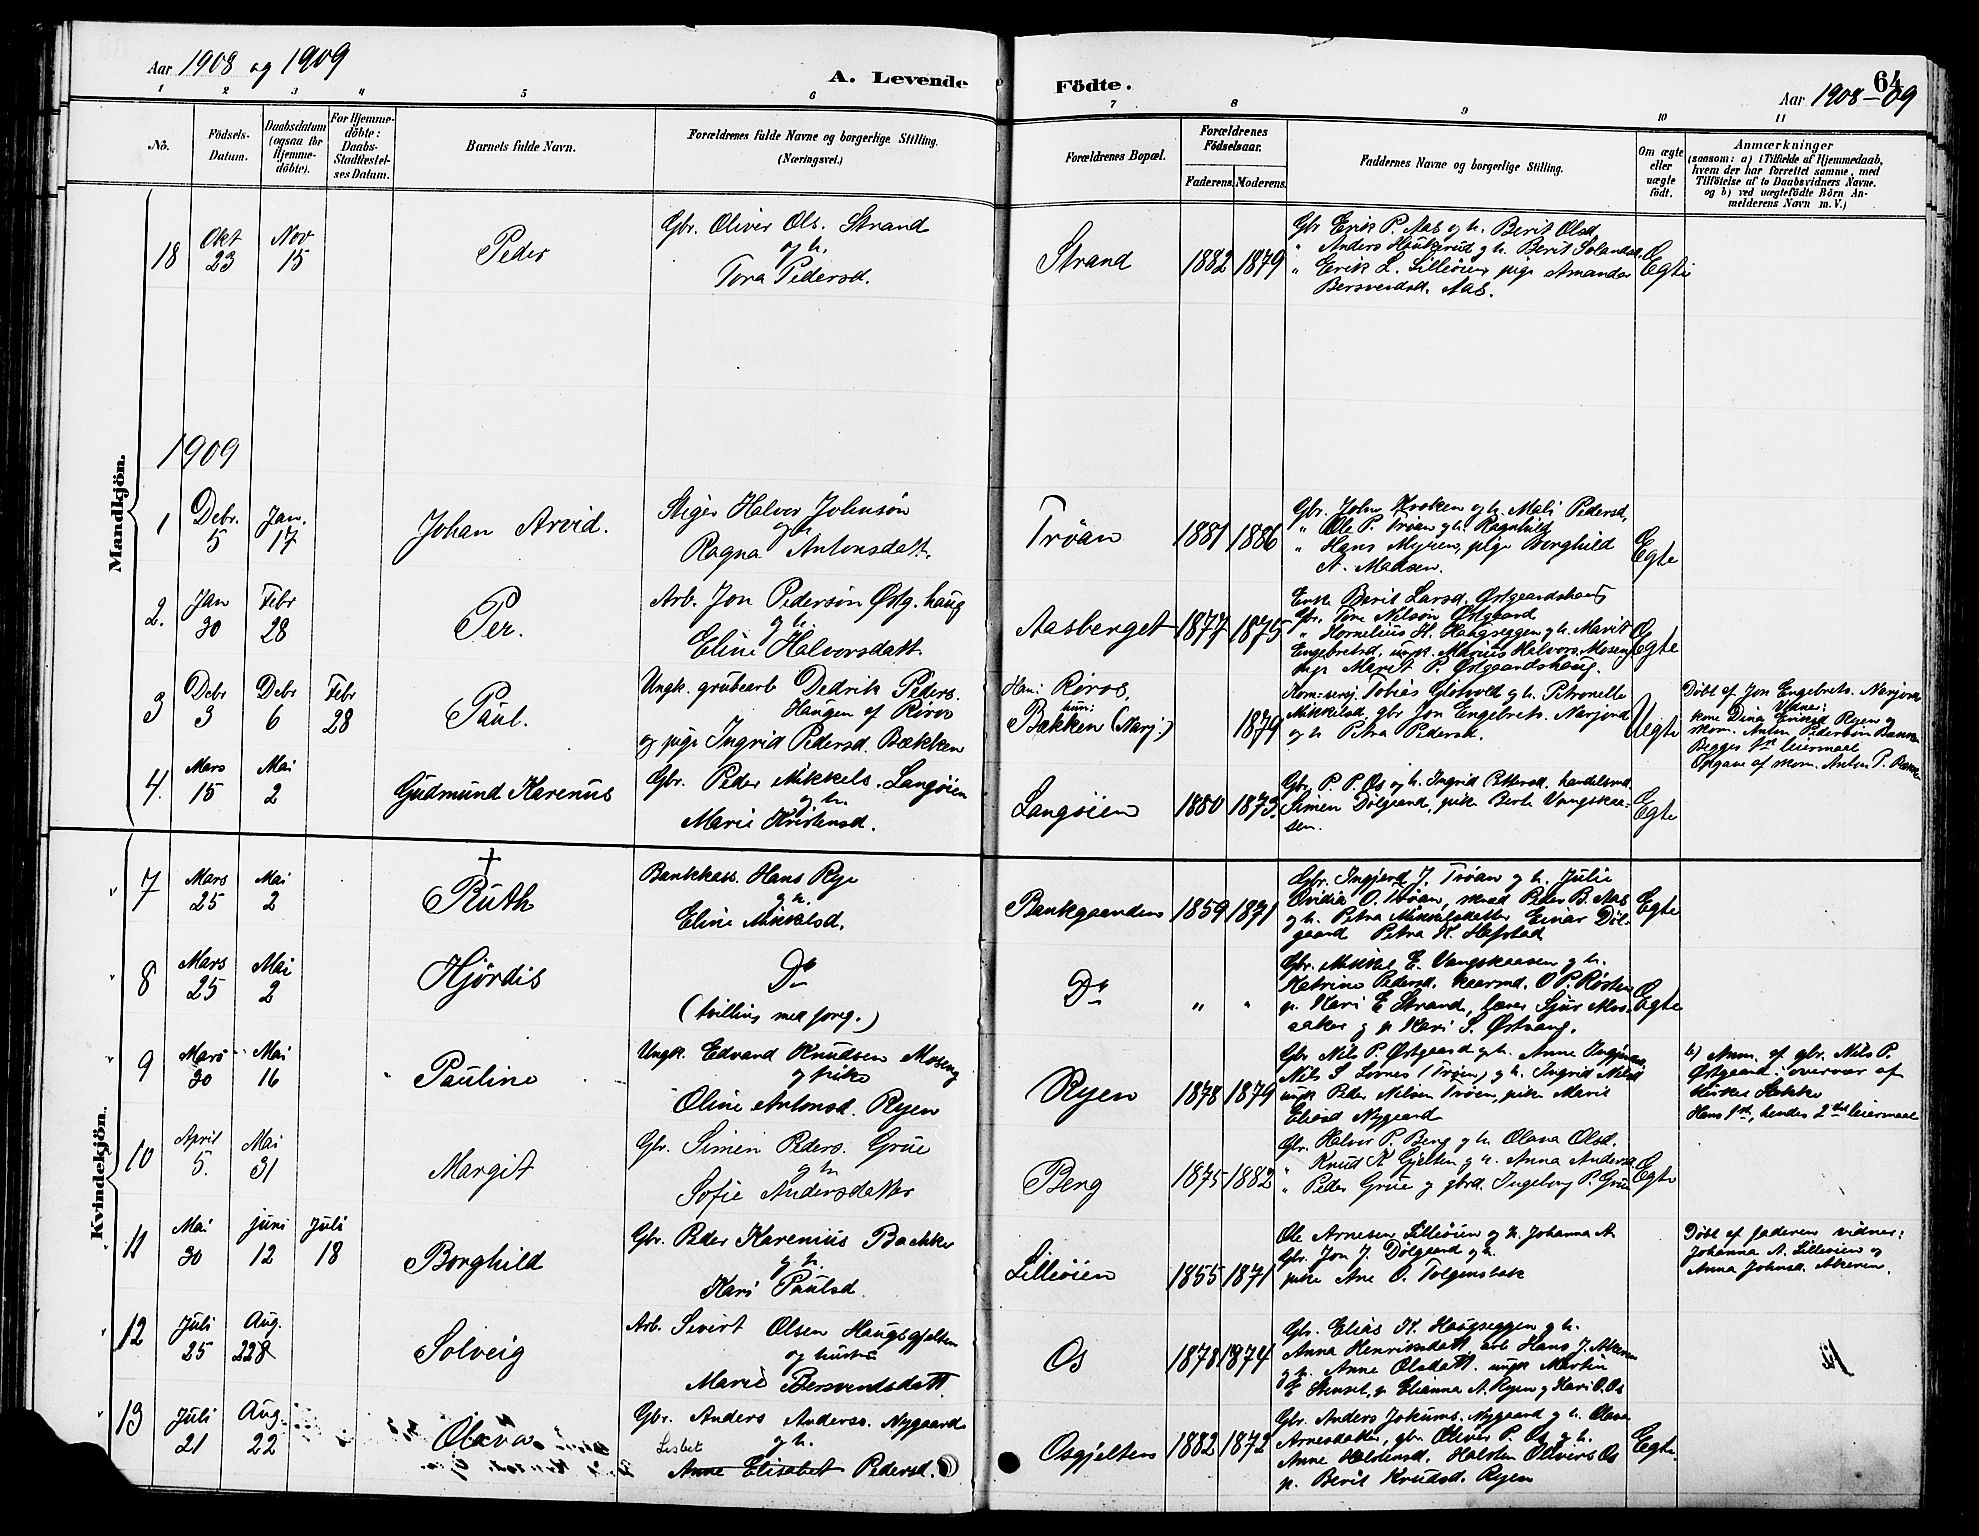 Aar 1908 og 1909
A. Levende Födte.
64
Aar 1908-09
1 2 3 4 5 6 7 8 9 10 11
No.
Födsels-
Datum.
Daabsdatum
(ogsaa for
Hjemme-
döbte).
For Hjemme-
döbte:
Daabs-
Stadfæstel-
ses Datum.
Barnets fulde Navn.
Forældrenes fulde Navne og borgerlige Stilling.
(Næringsvei.)
Forældrenes Bopæl.
Forældrenes
Födselsaar.
Faderens. Moderens.
Faddernes Navne og borgerlige Stilling.
Om ægte
eller
uægte
födt.
Anmærkninger
(saasom: a) i Tilfælde af Hjemmedaab,
hvem der har forrettet samme, med
Tilföielse af to Daabsvidners Navne.
og b) ved uægtefödte Börn An-
melderens Navn m. V.)
Mandkjön.
18
Okt
23
Nov
15
Peder
Gbr. Oliver Ols. Strand
og h.
Tora Pedersd.
Strand
1882 1879
Gbr Erik P. Aas og h. Berit Olsd
" Anders Haukerud og h. Berit
" Erik L. Lilleöien, pige Amanda
Bersvendsd. Aas.
Egte
1909
1
Debr.
5
Jan.
17
Johan Arvid.
Stiger Halvor Johnsön
og h.
Ragna Antonsdatt.
Tröan
1881 1886
Gbr. John Kroken og h. Mali Pedersd,
" Ole P. Tröan og h. Ragnhild
" Hans Myren, pige Borghild
A. Madsen.
Egte
2.
Jan
30
Febr
28
Per.
Arb. Jon Pedersön Östg. haug
og h.
Eline Halvorsdatt.
Aasberget
1877 1875
Enke Berit Larsd. Östgaardshaug
Gbr. Tore Nilsön Östgaard
" Kornelius H. Haugseggen og h. Marit
Engebretsd. ungk. Marius Halvors. Moseng
pige Marit P. Östgaardshaug.
Egte
3
Debr
3
Debr
6
Febr
28
Paul.
Ungk. grubearb Dedrik Peders.
Haugen af Röros
og pige Ingrid Pedersd. Bækken
Han: Röros,
hun:
Bækken (Narj.)
1879
Tobias Glötvold og h. Petronelle
Mikkelsd, gbr Jon Engebrets. Narjord
og h. Petra Pedersd.
Uegte
Döbt af Jon Engebrets. Narjord
Vidne:
kone Dina Eriksd Ryen og
skom. Anton Pedersön
Begges 1ste leiermaal
Opgave af skom. Anton P.
4.
Mars
15
Mai
2
Gudmund Karenus
Gbr. Peder Mikkels. Langöien
og h.
Marie Kristensd.
Langöien
1880 1873.
Gbr P. P. Os og h. Ingrid Pettersd. handelsmd
Simen Dölgaard, pike Berte Vangskaa-
sen.
Egte
Kvindekjön.
7
Mars
25
Mai
2
†
Ruth
Bankkass. Hans Rye
og h.
Eline Mikkelsd.
Bankgaarden
1859 1871
Gbr. Ingjerd J. Tröan og h. Julie
Ovidia O. Tröan, Peder B. Aas
og h. Petra Mikkelsdatter Einar Döl-
gaard Petra K. Hafstad
Egte
8
Mars
25
Mai
2
Hjördis
Do
(tvilling med forrg.)
Do
" "
Gbr. Mikkel E. Vangskaasen og h.
Katrine Pedersd. O P. Rösten
p. Kari E Strand, lærer Sjur Mos-
aaker og p. Kari S. Östvang.
Egte
9
Mars
30
Mai
16
Pauline
Ungk. Edvard Knudsen Moseng
og pike
Oline Antonsd. Ryen
Ryen
1878 1879
Gbr Nils P. Östgaard og h. Anne
Nils S Lovnes (Tröen) og h. Ingrid Nilsd
ungk Peder Nilsen Tröen, pike Marit
Eliasd Nygaard
b) Anm. af gbr. Nils P.
Östgaard i overvær af
Hans 1ste, hendes 2det leiermaal
10
April
5.
Mai
31
Margit
Gbr. Simen Peders. Grue
og h.
Sofie Andersdatter
Berg
1875 1882
Gbr. Halvor P. Berg og h. Olava Olsd.
" Knud K Gjelten og h. Anna Andersd
" Peder Grue og gbrd. Ingeborg P. Grue
Egte
11
Mai
30
juni
12
Juli
18
Borghild
Gbr. Peder Karenius Bachke
og h.
Kari Paulsd.
Lilleöien
1855 1871
Ole Arnesen Lilleöien og h. Johanna A
Gbr. Jon J. Dölgaard og h.
pike Ane O. Tolgensbak
Döbt af faderen vidner:
Johanna A. Lilleöien og
Anna Johnsd. Akeren.
12
Juli
25
Aug.
228
Solveig
Arb. Sivert Olsen Haugsgjelten
og hustru
Marie Bersvendsdatt.
Os
1878 1874
Gbr. Elias K. Haugseggen og h.
Anna Henriksdatt. arb Hans J. Akeren
og h. Anne Olsdatt. ungk Martin
E Stensli, p. Elianna A. Ryen og Kari O. Os
13
Juli
21
Aug.
22
Olava
Gbr. Anders Anderss. Nygaard
og h.
Lisbet
Anne Elisabet Pedersd.
Osgjelten
1882 1872
Gbr. Anders Jokums. Nygaard og h. Olava
Arnesdatter, gbr. Oliver P. Os og h.
Anne Halstensd. Halsten Olivers Os
p. Berit Knudsd. Ryen
Egte.